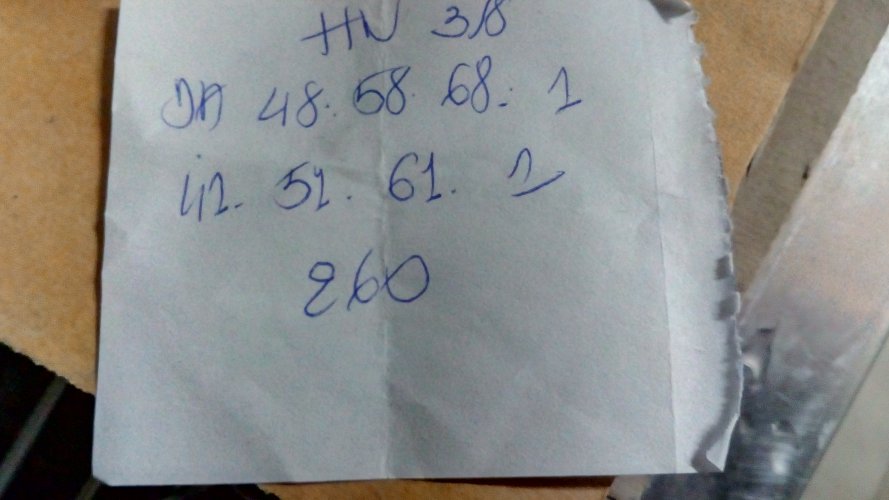 HN 3/8
DA 48. 58. 68. 1
41. 51. 61. 1
260